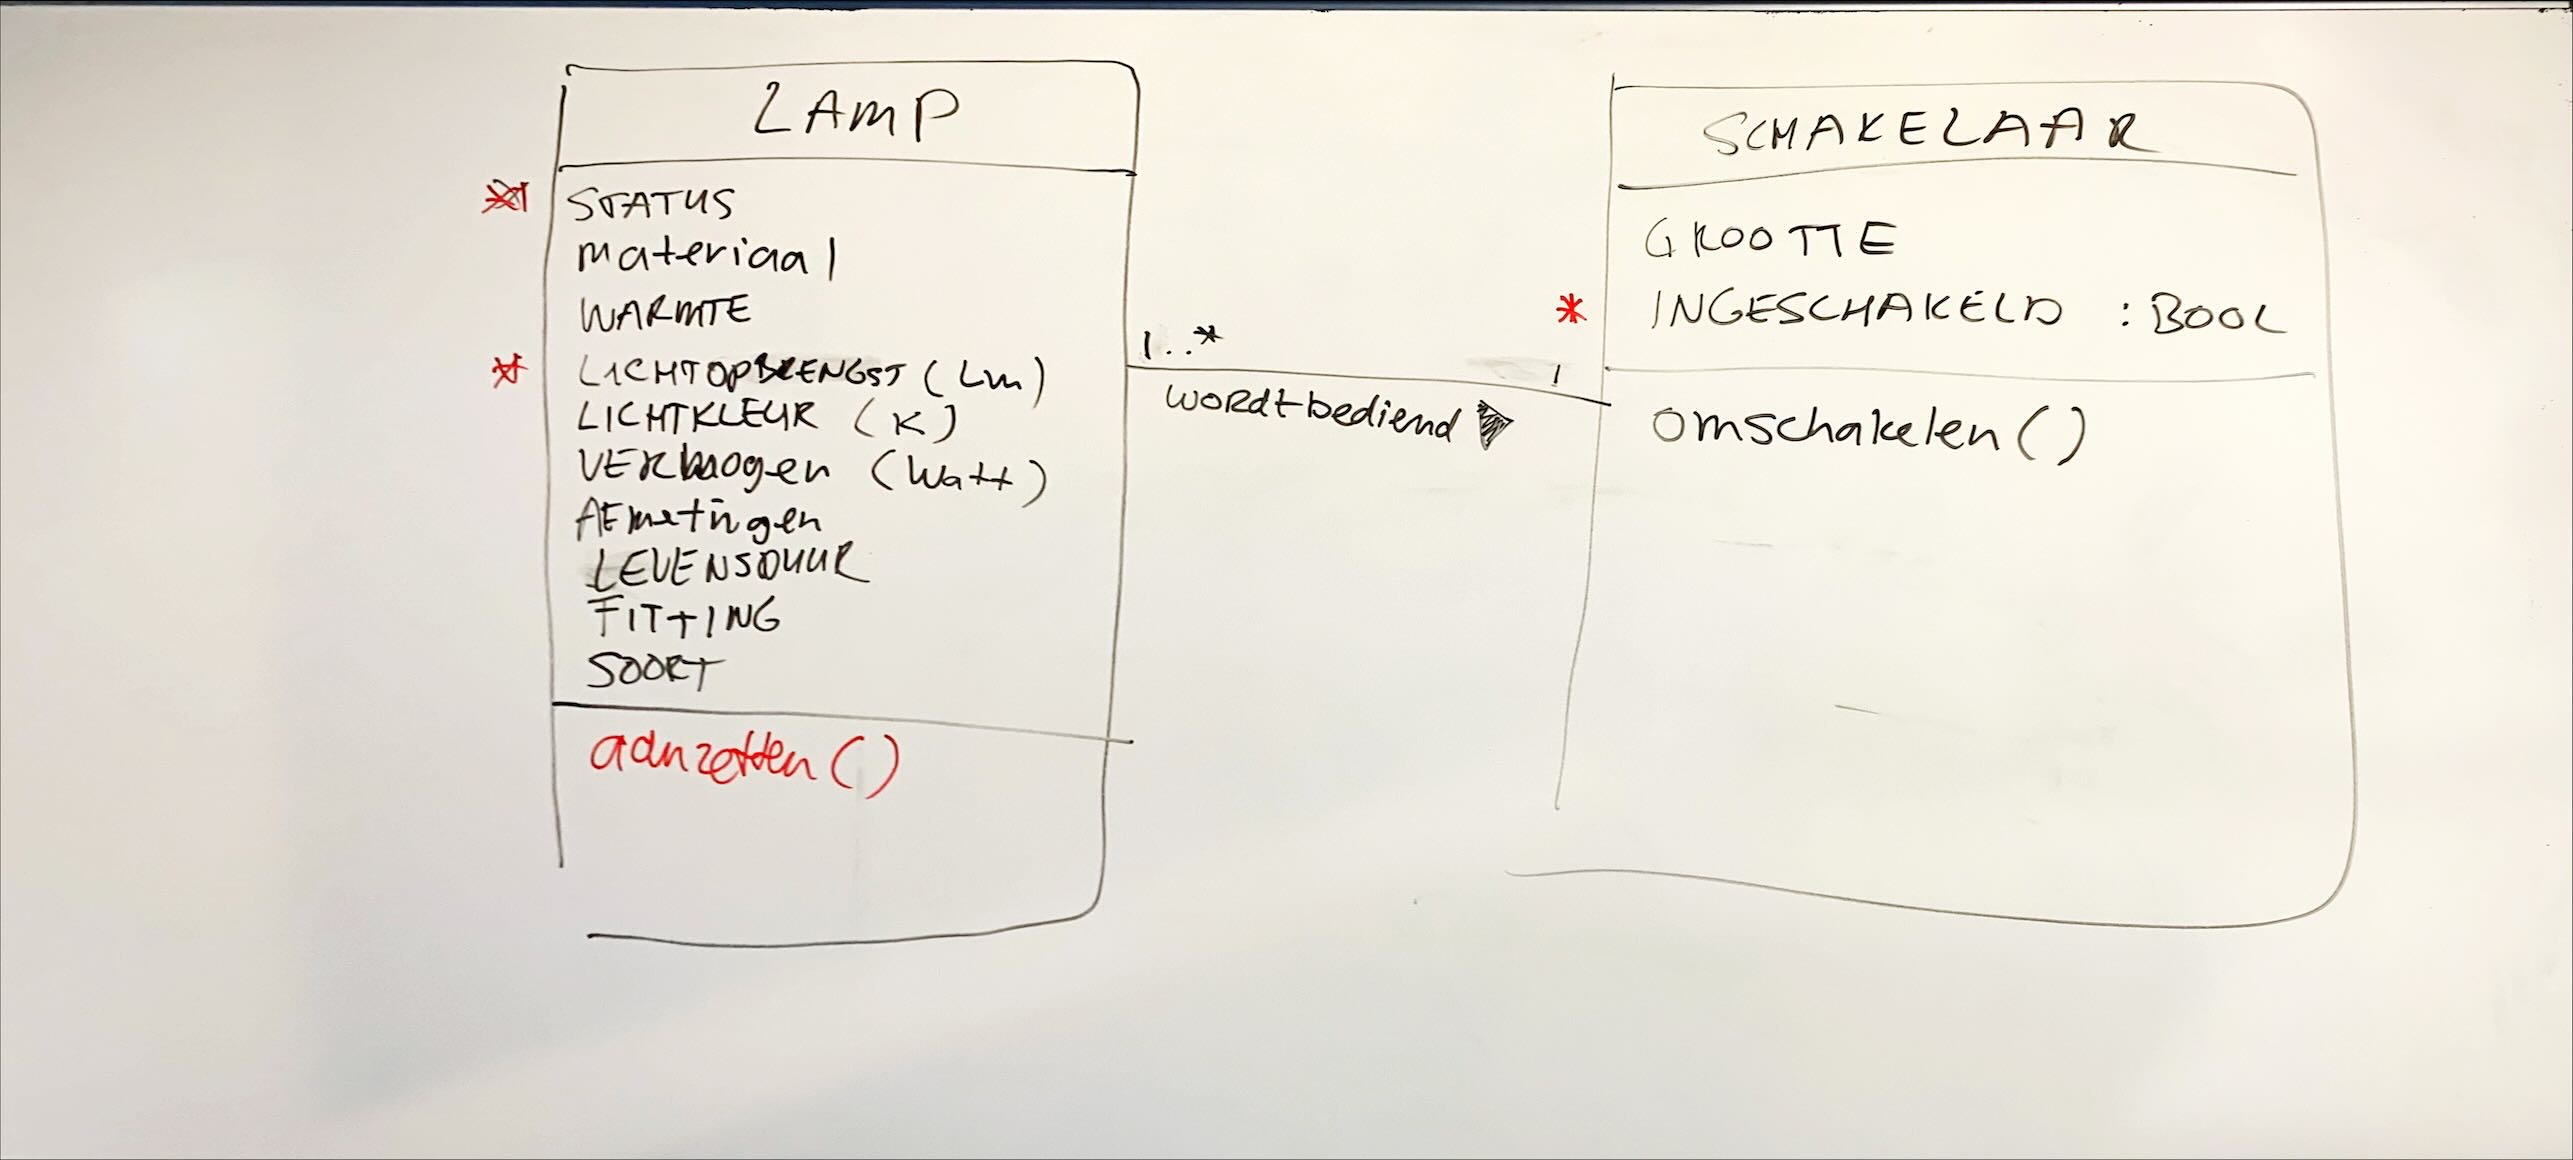 LAMP
* STATUS
materiaal
WARMTE
* LICHTOPBRENGST (Lm)
LICHTKLEUR (K)
VERmogen (Watt)
AFmetingen
LEVENSDUUR
FITTING
SOORT
aanzetten ()
1..*
1
wordt bediend
SCHAKELAAR
GROOTTE
* INGESCHAKELD : BOOL
omschakelen ()